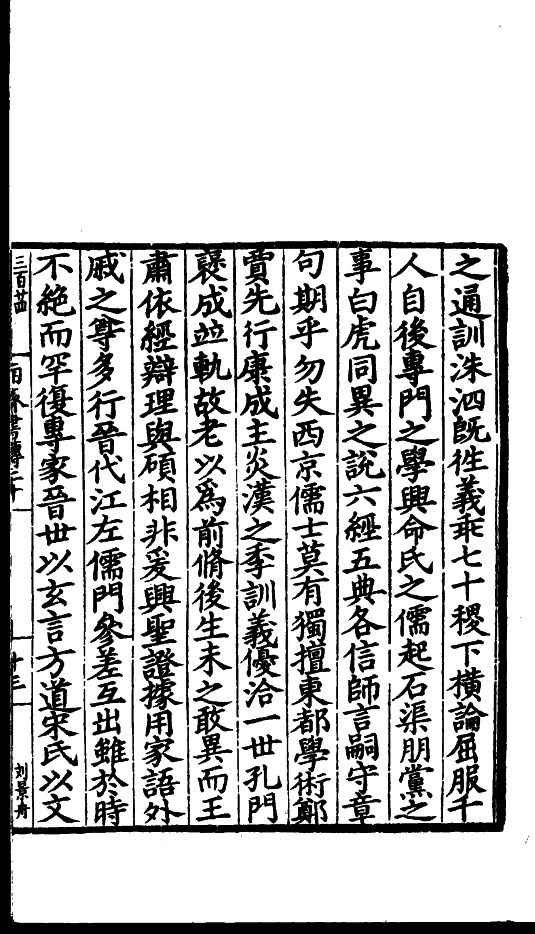 之通訓洙泗旣徃義乖七十稷下橫論屈服千
人自後專門之學興命氏之儒起石渠朋黨之
事白虎同異之說六經五典各信師言嗣守章
句期乎勿失西京儒士莫有獨擅東都學術鄭
賈先行康成主炎漢之季訓義優洽一世孔門
襃成並軌故老以爲前脩後生未之敢異而王
肅依經辯理與碩相非爰興聖證據用家語外
戚之尊多行晉代江左儒門參差互出雖於時
不絕而罕復專家晉世以玄言方道宋氏以文
三百廿四
南齊書傳二十
十三
刘景舟